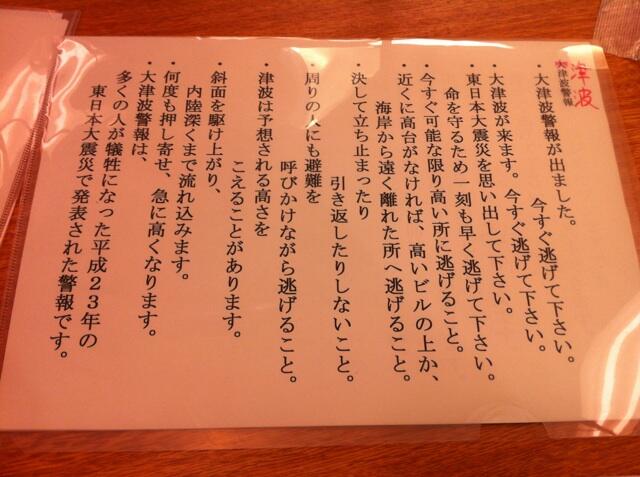 津波
大津波警報
・大津波警報が出ました。
今すぐ逃げて下さい。
・大津波が来ます。今すぐ逃げて下さい。
・東日本大震災を思い出して下さい。
命を守るため一刻も早く逃げて下さい。
・今すぐ可能な限り高い所に逃げること。
・近くに高台がなければ、高いビルの上か、
海岸から遠く離れた所へ逃げること。
・決して立ち止まったり
引き返したりしないこと。
・周りの人にも避難を
呼びかけながら逃げること。
・津波は予想される高さを
こえることがあります。
・斜面を駆け上がり、
内陸深くまで流れ込みます。
・何度も押し寄せ、急に高くなります。
・大津波警報は、
多くの人が犠牲になった平成23年の
東日本大震災で発表された警報です。